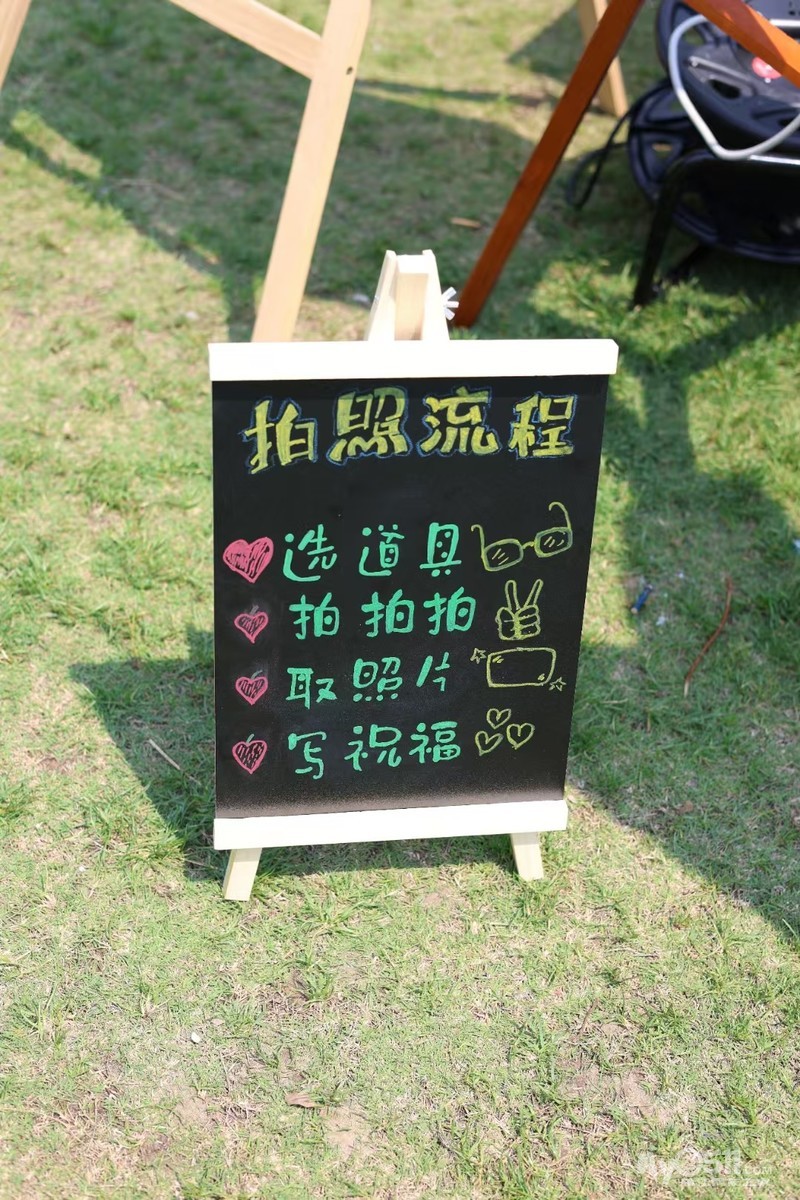 拍照流程
选道具
拍拍拍
取照片
写祝福